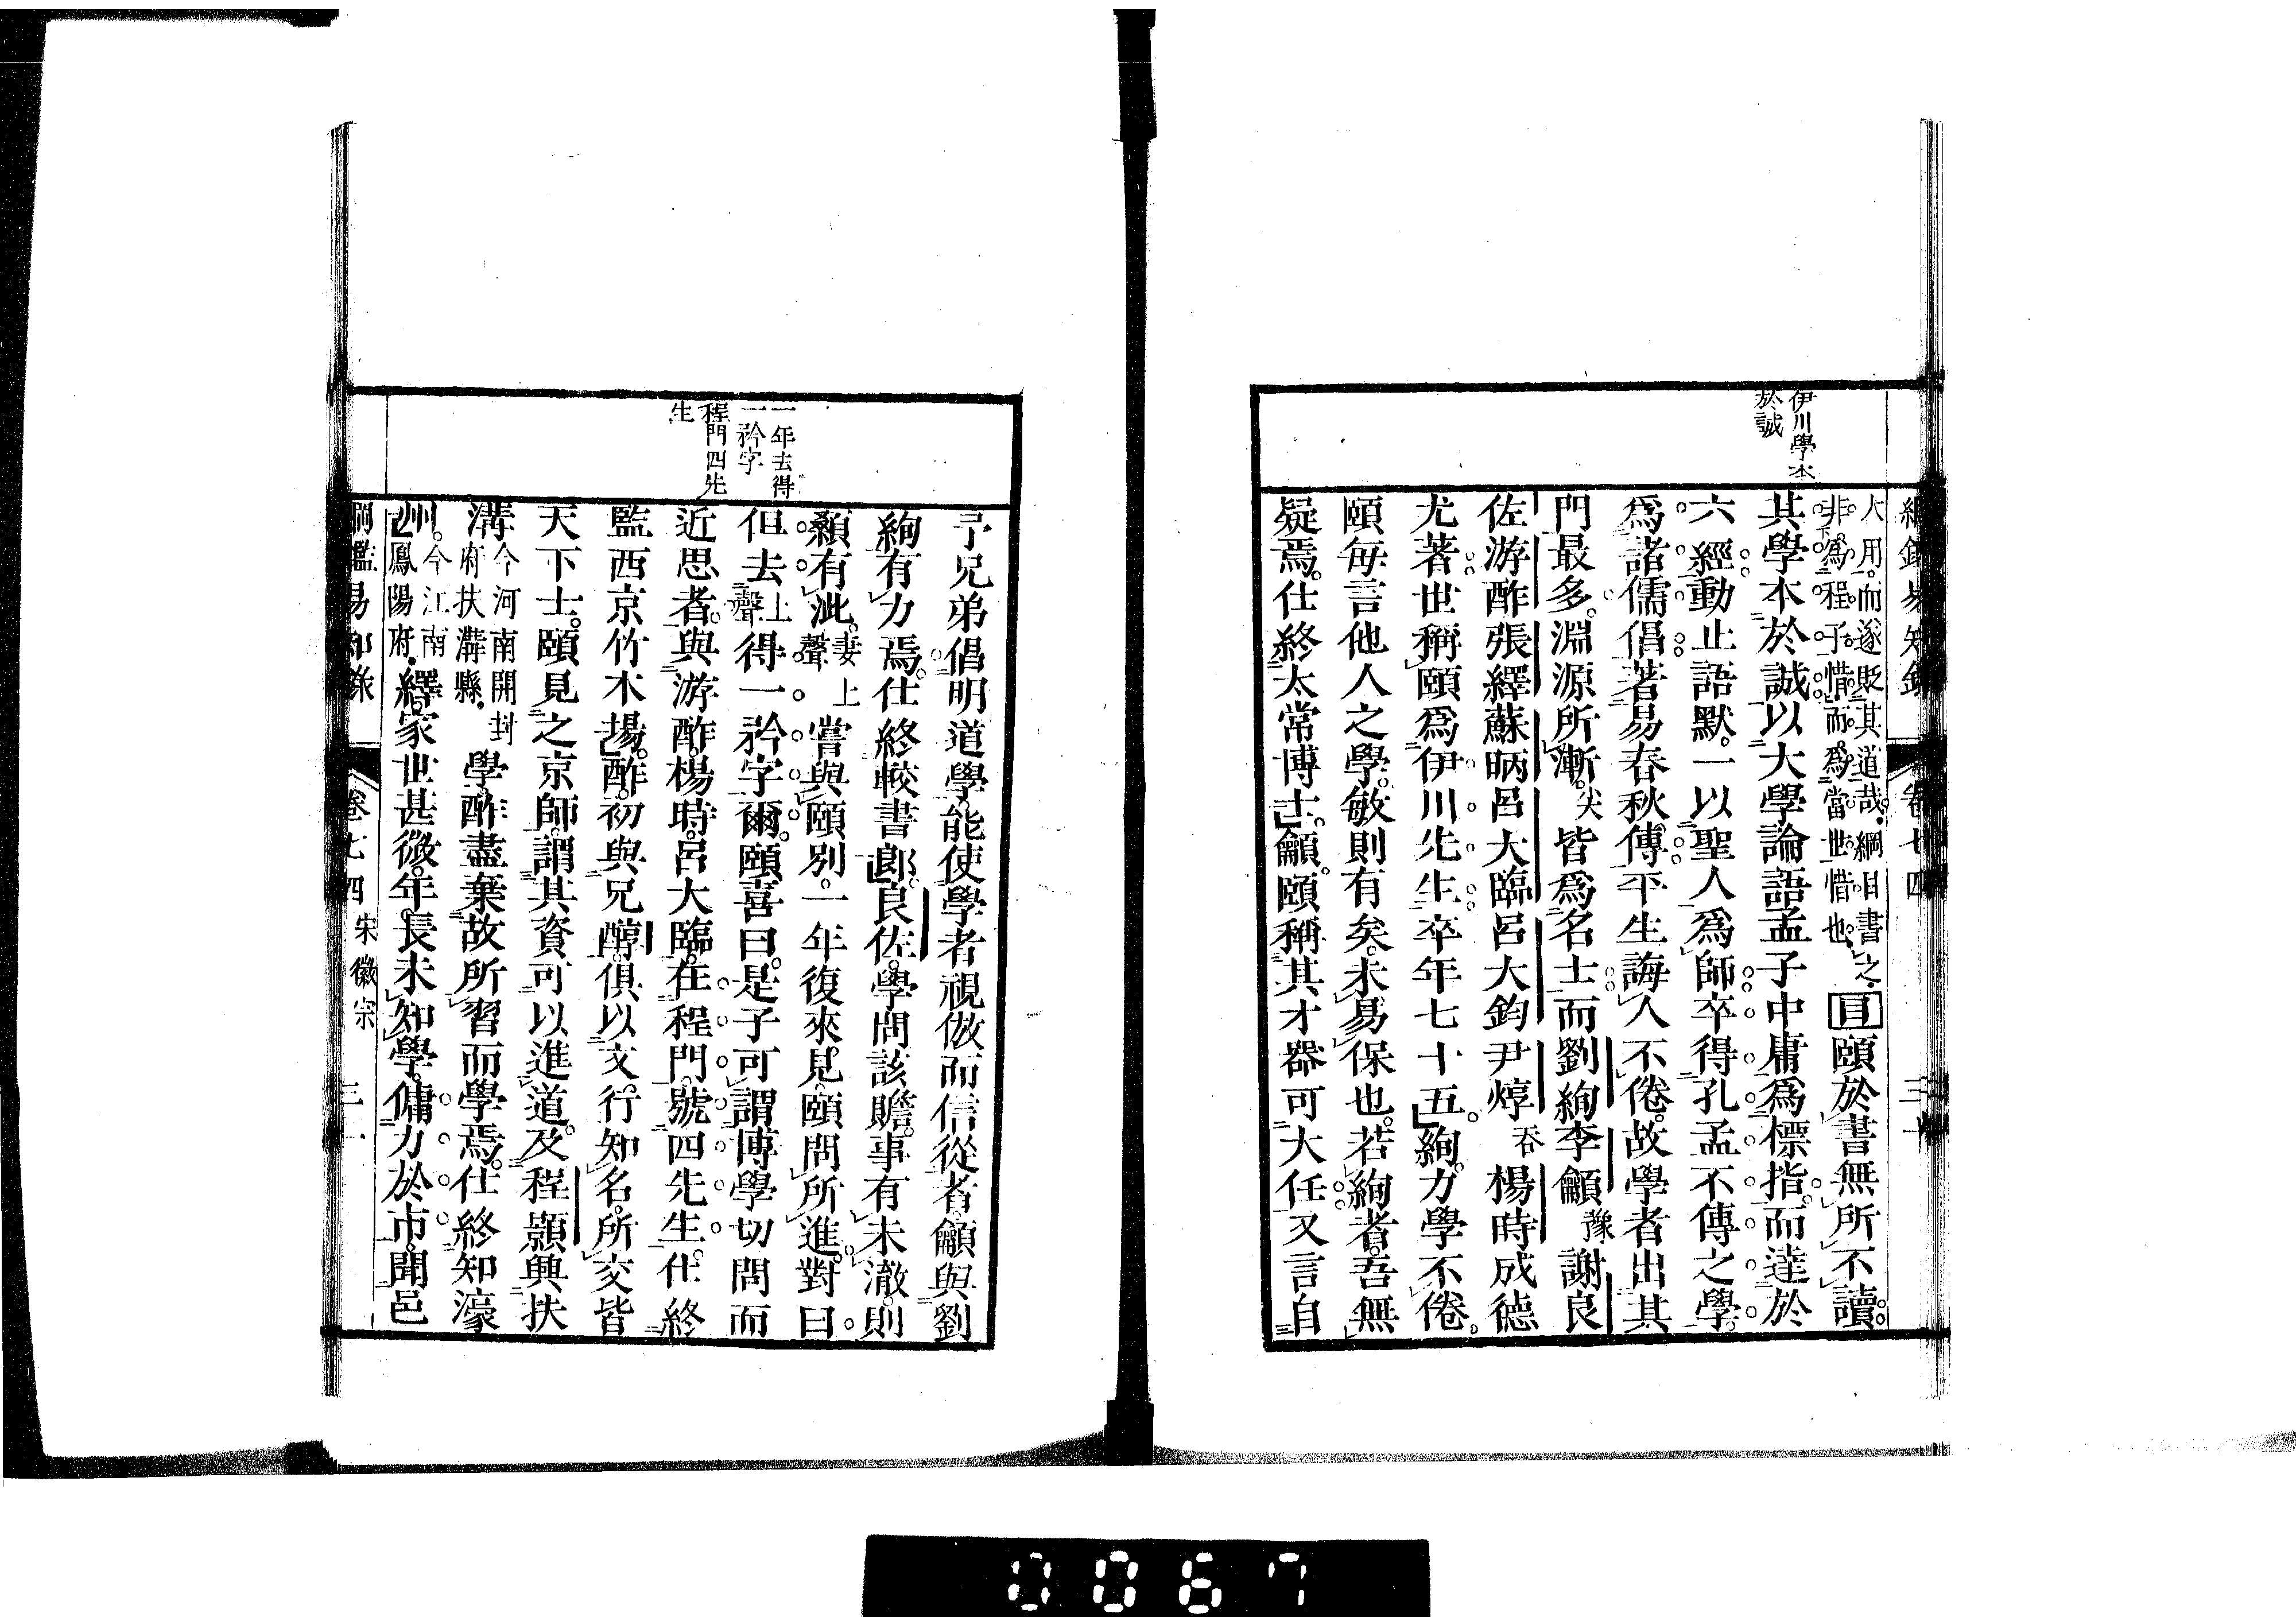 綱鑑易知錄 卷七四
伊川學本
於誠
大用而遂貶其道哉綱目書之
非為程子惜而為當世惜也
目頤於書無所不讀
其學本於誠以大學論語孟子中庸爲標指而達於
六經動止語默一以聖人爲師卒得孔孟不傳之學
爲諸儒倡著易春秋傳平生誨人不倦故學者出其
門最多淵源所漸尖皆爲名士而劉絢李籲豫謝良
佐游酢張繹蘇昞呂大臨呂大鈞尹焞吞楊時成德
尤著世稱頤爲伊川先生卒年七十五絢力學不倦
頤每言他人之學敏則有矣未易保也若絢者吾無
疑焉仕終太常博士籲頤稱其才器可大任又言自
一年去得
一矜字
程門四先
生
予兄弟倡明道學能使學者視倣而信從者籲與劉
絢有力焉仕終較書郎良佐學問該贍事有未澈則
顙有泚妻上聲嘗與頤別一年復來見頤問所進對曰
但去上聲得一矜字爾頤喜曰是子可謂博學切問而
近思者與游酢楊時呂大臨在程門號四先生仕終
監西京竹木場酢初與兄醇俱以文行知名所交皆
天下士頤見之京師謂其資可以進道及程顥興扶
溝今河南開封府扶溝縣學酢盡棄故所習而學焉仕終知濠
州今江南鳳陽府繹家世甚微年長未知學傭力於市聞邑
綱鑑易知錄 卷七四 宋徽宗
0067